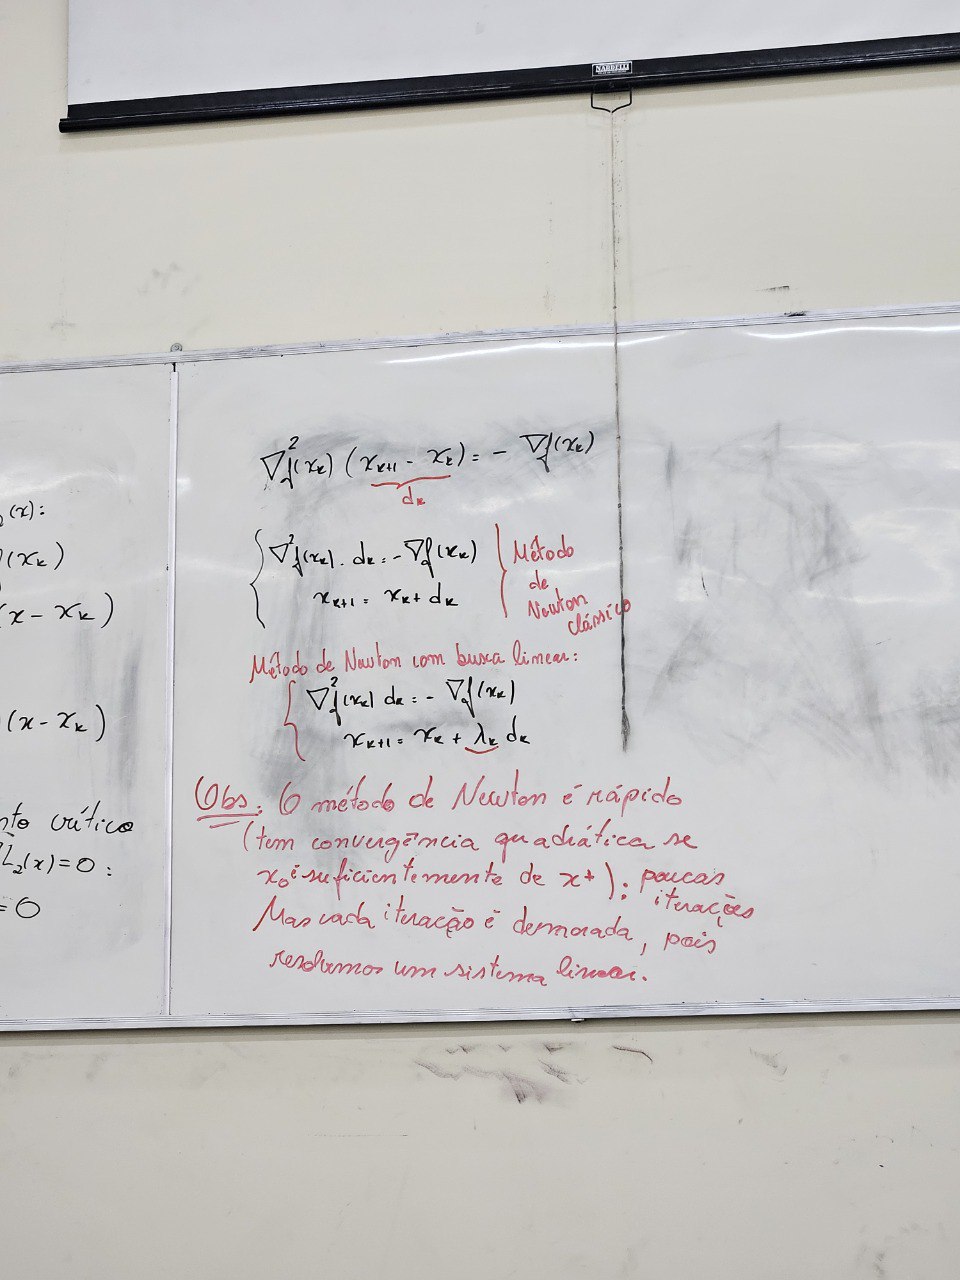 NARDELLI
∇²f(xₖ) (xₖ₊₁ - xₖ) = - ∇f(xₖ)
dₖ
∇²f(xₖ) . dₖ = -∇f(xₖ)
xₖ₊₁ = xₖ + dₖ
Método
de
Newton
clássico
Método de Newton com busca linear:
∇²f(xₖ) dₖ = - ∇f(xₖ)
xₖ₊₁ = xₖ + λₖ dₖ
Obs: O método de Newton é rápido
(tem convergência quadrática se
x₀ é suficientemente de x*): poucas
iterações
Mas cada iteração é demorada, pois
resolvemos um sistema linear.
₂(x):
(xₖ)
(x - xₖ)
(x - xₖ)
nto crítico
L₂(x) = 0 :
= 0